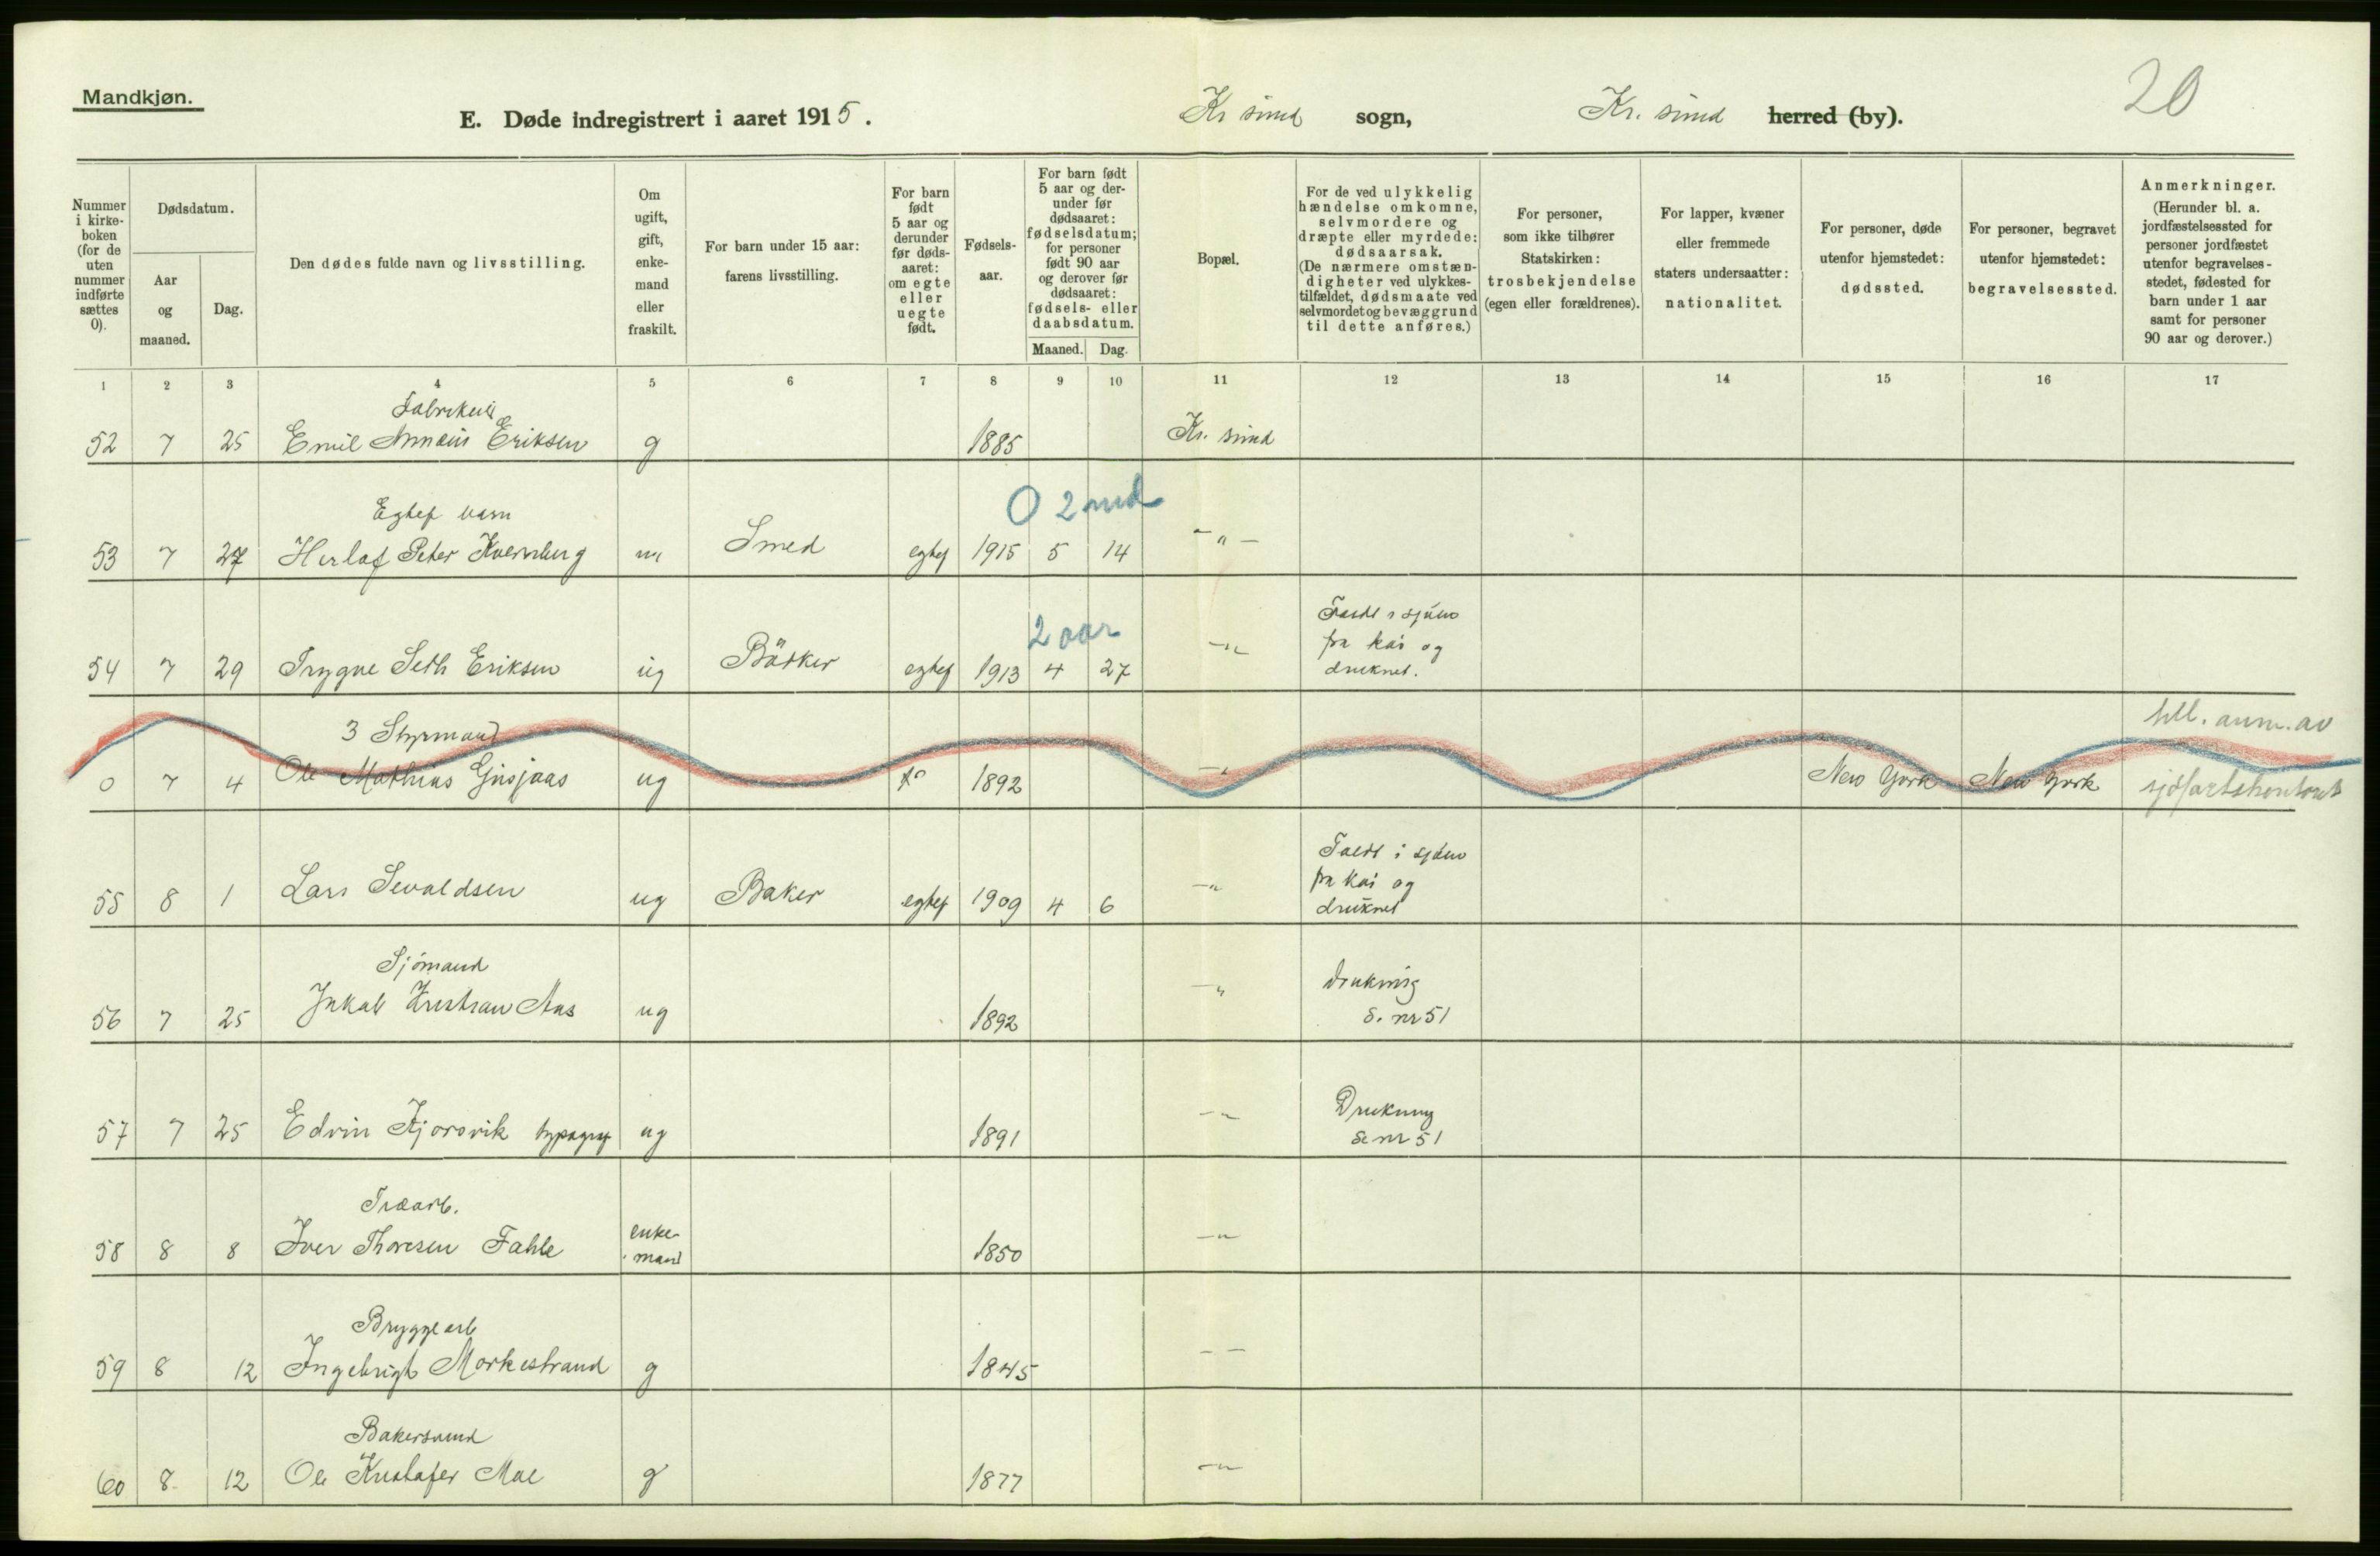 Mandkjøn.
20
E. Døde indregistrert i aaret 1915.
Kr sund sogn,
Kr. sund herred (by).
Nummer i kirke-boken (for de uten nummer indførte sættes 0).
Dødsdatum.
Aar og maaned.
Dag.
Den dødes fulde navn og livsstilling.
Om ugift, gift, enke-mand eller fraskilt.
For barn under 15 aar: farens livsstilling.
For barn født 5 aar og derunder før døds-aaret: om egte eller uegte født.
Fødsels-aar.
For barn født 5 aar og der-under før dødsaaret: fødselsdatum; for personer født 90 aar og derover før dødsaaret: fødsels- eller daabsdatum.
Maaned. Dag.
Bopæl.
For de ved ulykkelig hændelse omkomne, selvmordere og dræpte eller myrdede: dødsaarsak. (De nærmere omstæn-digheter ved ulykkes-tilfældet, dødsmaate ved selvmordet og bevæggrund til dette anføres.)
For personer, som ikke tilhører Statskirken: trosbekjendelse (egen eller forældrenes).
For lapper, kvæner eller fremmede staters undersaatter: nationalitet.
For personer, døde utenfor hjemstedet: dødssted.
For personer, begravet utenfor hjemstedet: begravelsessted.
Anmerkninger. (Herunder bl. a. jordfæstelsessted for personer jordfæstet utenfor begravelses-stedet, fødested for barn under 1 aar samt for personer 90 aar og derover.)
1 2 3 4 5 6 7 8 9 10 11 12 13 14 15 16 17
Fabrikeier
52 7 25 Emil Annæus Eriksen g 1885 Kr. sund
0 2 md
Egtef barn
53 7 27 Herlof Peter Kvernberg m Smed egtef 1915 5 14 - " -
2 aar
Faldt i sjöen
fra kai og
druknet.
54 7 29 Trygve Seth Eriksen ug Bödker egtef 1913 4 27 - " -
3 Styrmand
till. anm. av
0 7 4 Ole Mathias Gusjaas ug 1892 - " New York New York sjöfartskontoret
Faldt i sjöen
fra kai og
druknet
55 8 1 Lars Sevaldsen ug Baker egtef 1909 4 6 - "
Sjömand
Drukning
56 7 25 Jakob Kristian Aas ug 1892 - " s. nr 51
Drukning
57 7 25 Edvin Fjorsvik typograf ug 1891 - " - Se nr 51
Træarb.
58 8 8 Iver Thoresen Fahle enke-mand 1850 - " -
Bryggearb
59 8 12 Ingebrigt Morkestrand g 1845 - -
Bakersvend
60 8 12 Ole Kristofer Moe g 1877 - " -